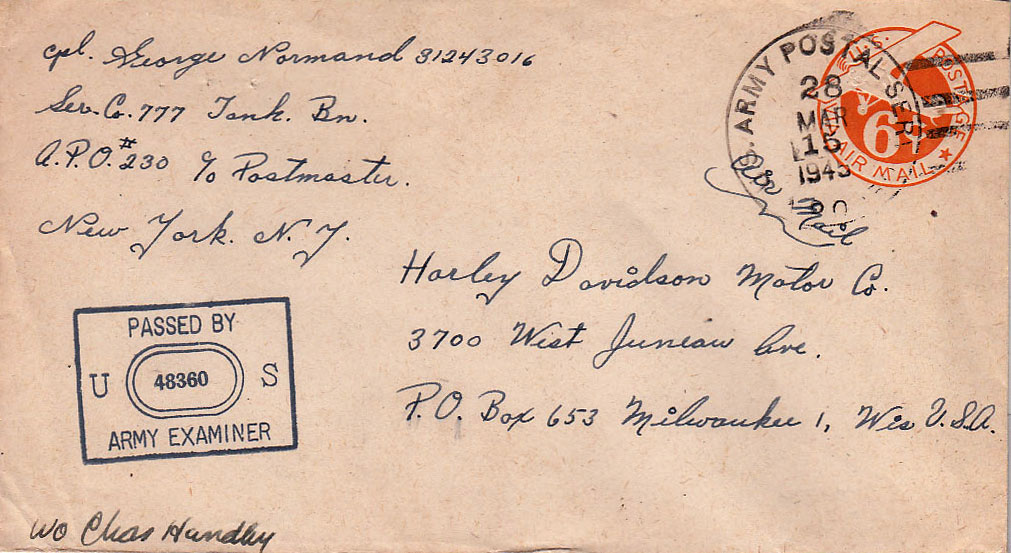 cpl. George Normand 31243016
Ser. Co. 777 Tank. Bn.
A.P.O.# 230 c/o Postmaster.
New York. N.Y.
U.S. ARMY POSTAL SER
28
MAR
15
1945
U.S. POSTAGE
6¢
VIA AIR MAIL
Air Mail
Harley Davidson Motor Co.
3700 West Juneau Ave.
P.O. Box 653 Milwaukee 1, Wis U.S.A.
PASSED BY
U 48360 S
ARMY EXAMINER
WO Chas Handley